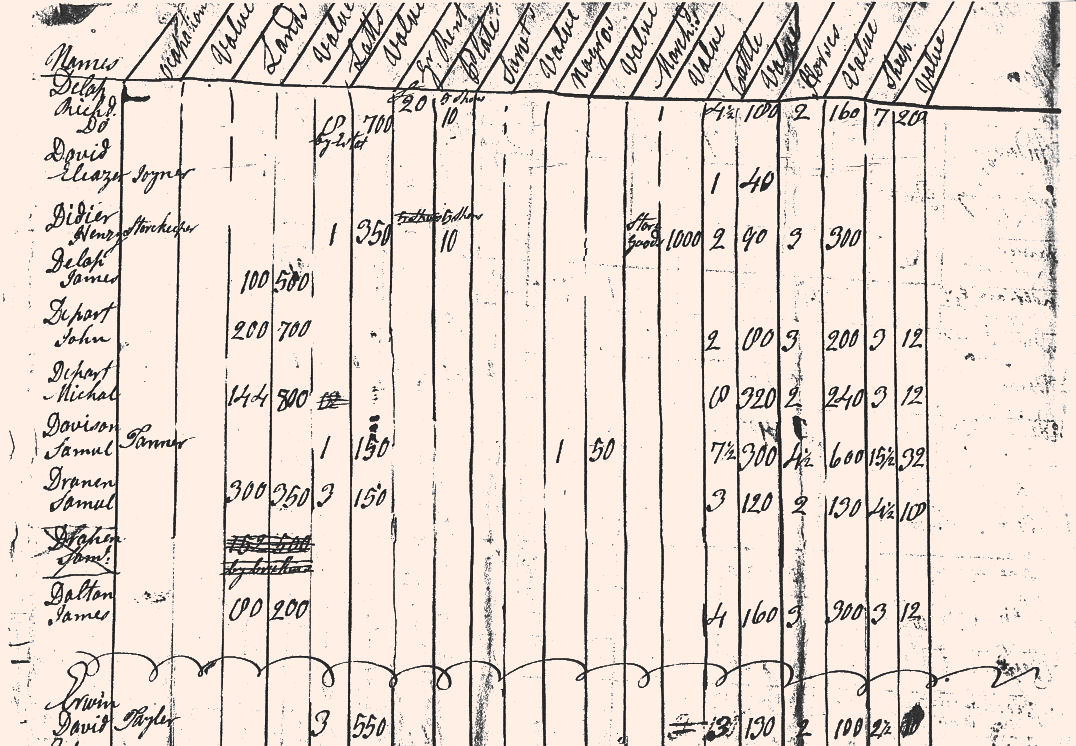 Names Value Land Value Lotts Value Gr Rent Plate Value Negros Value Value Cattle Value Horses Value Value
Delap
Richd. 20 10 4½ 100 2 160 7 20
Do 700
David
Eleazer Joyner 1 40
Didier
Henry Storekeeper 1 350 10 Store Goods 1000 2 90 3 300
Delap
James 100 500
Depart
John 200 700 2 80 3 200 3 12
Depart
Michal 144 800 8 320 2 240 3 12
Davison
Samul Tanner 1 150 1 50 7½ 300 4½ 600 15½ 32
Dranen
Samul 300 350 3 150 3 120 2 130 4½ 18
Dranen 152 500
Saml.
Dalton
James 80 200 4 160 3 300 3 12
Erwin
David Tayler 3 550 3 130 2 100 2½